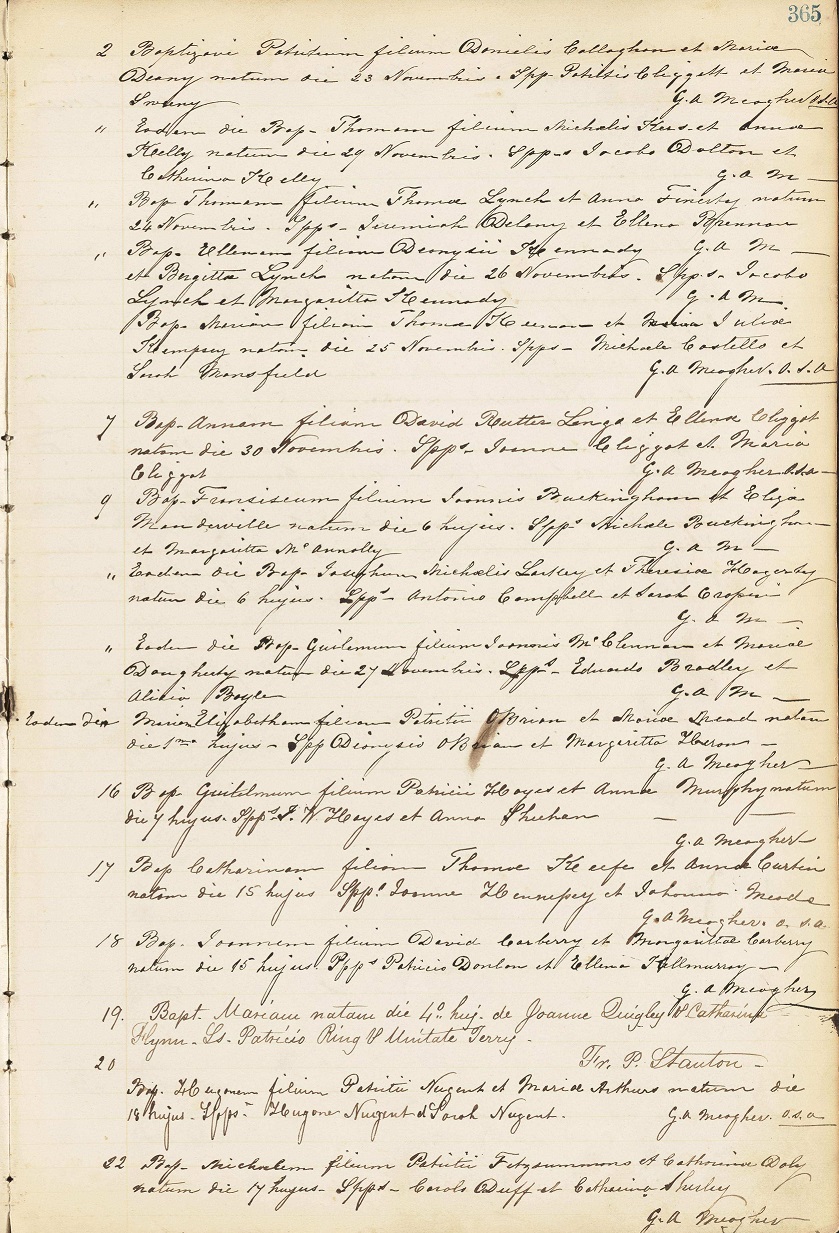 365
2 Baptizavi Patritium filium Danielis Callaghan et Mariae
Deany natum die 23 Novembris. Spp Patritis Cliggatt et Maria
Sweeny G. A Meagher o.s.a
" Eodem die Bap- Thomam filium Michaelis et Annae
Kelly natum die 29 Novembris. Spps Jacobo Dalton et
Catherina Kelly G. A M —
" Bap Thomam filium Thomae Lynch et Anna natum
24 Novembris. Spps- Jeremiah Delany et Ellena Brennan
" Bap- Ellenam filiam Deonysii Kennady G. A M —
et Brigetta Lynch natam die 26 Novembris. Spps- Jacobo
Lynch et Margaritta Kennady G. A M
Bap- Mariam filiam Thomae Keenan et Juliae
Kempsey natam die 25 Novembris. Spps- Michaele Costello et
Sarah Mansfield G. A Meagher. o. s. a
7 Bap- Annam filiam David Rutter Longa et Ellena Cliggot
natam die 30 Novembris. Spps- Joanne Cliggot et Maria
Cliggot G. A Meagher o.s.a —
9 Bap- Fransiscum filium Joannis Buckingham et Eliza
Manderville natum die 6 hujus. Spps Michale Buckingham
et Margaritta McAnnolly G. A M —
" Eodem die Bap- Josephum Michaelis Larkey et Theresiae Hagerty
natum die 6 hujus. Spps- Antonio Campbell et Sarah
G. A M —
" Eodem die Bap- Guilemum filium Joannis McClennan et Mariae
Daugherty natum die 27 Novembris. Spps- Eduardo Bradley et
Alicia Boyle G. A M —
Eodem die Mariam Elizabetham filiam Patritii OBrian et Mariae Mead natam
die 1ma hujus- Spp Dionysio OBrian et Margaritta Heron —
G. A Meagher —
16 Bap Guilelmum filium Patricii Hayes et Annae Murphy natum
die 7 hujus. Spps J. W Hayes et Anna Sheehan — —
G. A Meagher
17 Bap Catharinam filiam Thomae Keefe et Annae Curtin
natam die 15 hujus Spps Joanne Hennessey et Johanna Meade
G. A Meagher. o. s. a.
18 Bap. Joannem filium David Carberry et Margarittae Carberry
natum die 15 hujus. Spps Patricio Donlon et Ellena Killmurray —
G. A Meagher
19. Bapt. Mariam natam die 4a. huj. de Joanne Quigley & Catharina
Flynn- Ls. Patricio Ring & Unitate Terry.
20 Fr. P. Stanton —
Bap. Hugonem filium Patritii Nugent et Mariae Arthurs natum die
18 hujus. Spps- Hugone Nugent et Sarah Nugent. G. A Meagher. o.s.a
22 Bap- Michaelem filium Patritii Fitzsummons et Catharinae Daly
natum die 17 hujus- Spps- Carolo Duff et Catharina Shirley
G. A Meagher